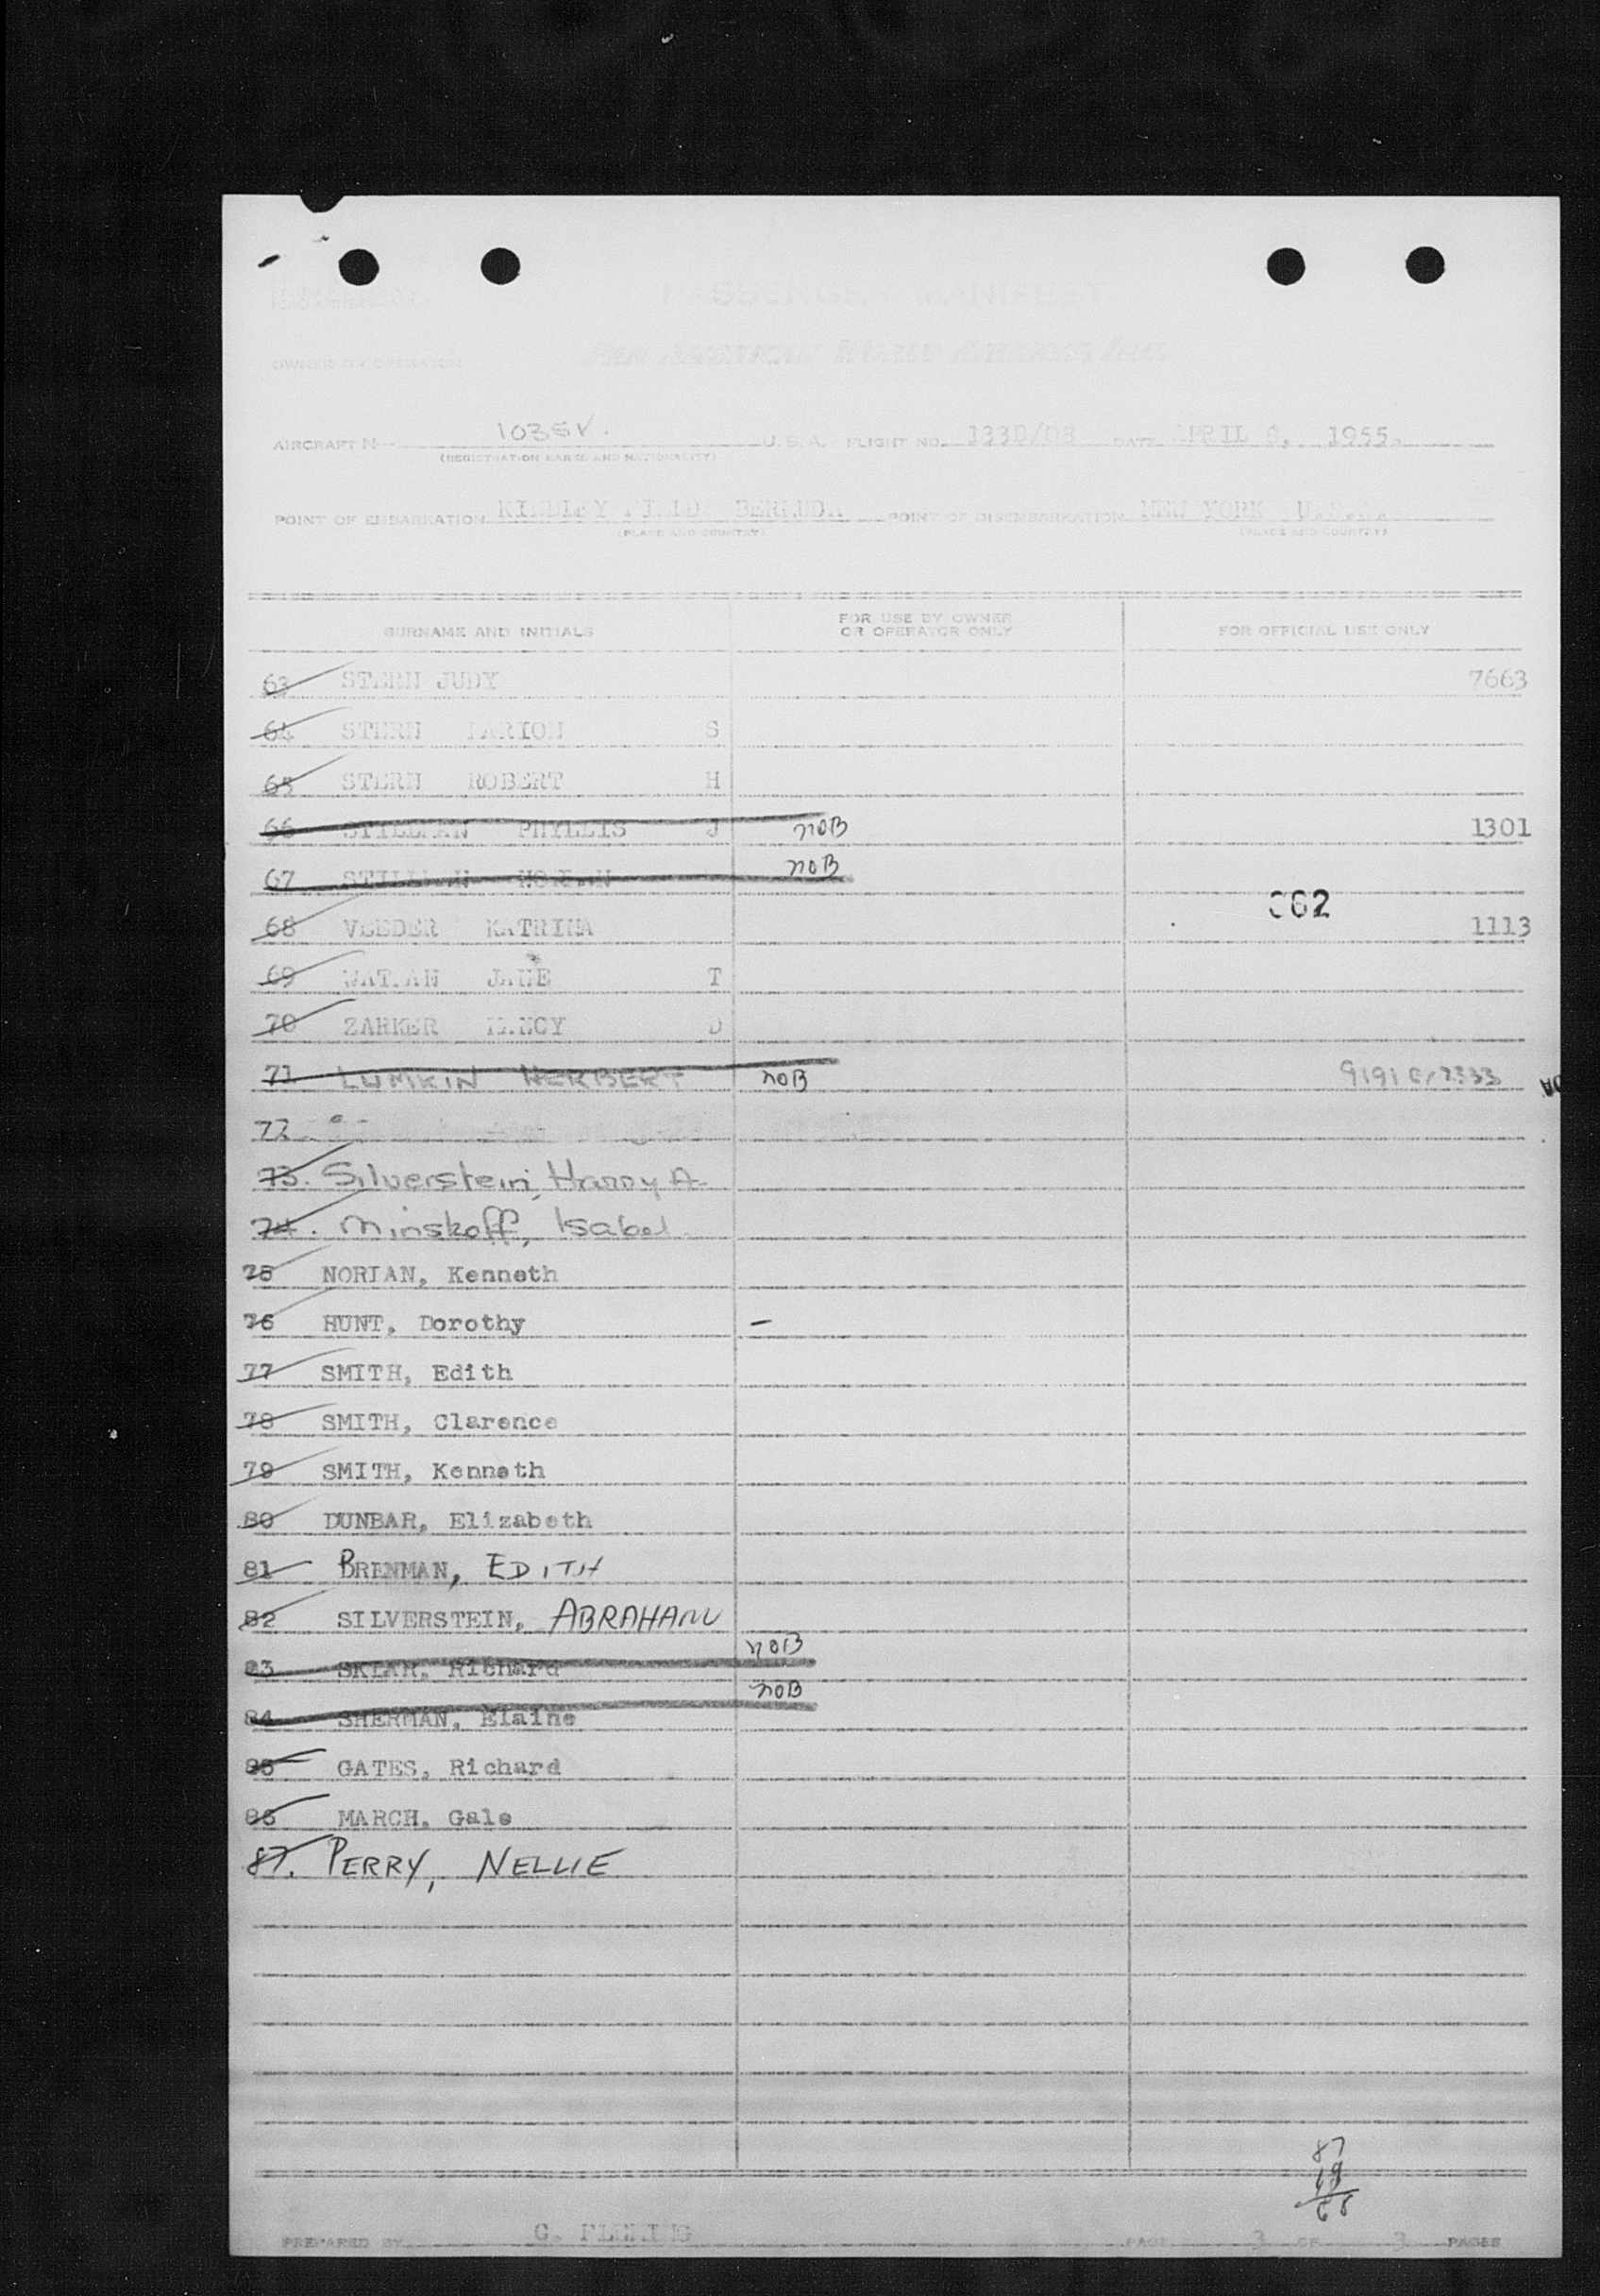 PASSENGER MANIFEST
OWNER OR OPERATOR
AIRCRAFT N 1035V. U.S.A. FLIGHT NO. DATE APRIL 1955.
(REGISTRATION MARKS AND NATIONALITY)
POINT OF EMBARKATION KINDLEY FIELD BERMUDA POINT OF DISEMBARKATION NEW YORK U.S.A.
(PLACE AND COUNTRY) (PLACE AND COUNTRY)
SURNAME AND INITIALS FOR USE BY OWNER OR OPERATOR ONLY FOR OFFICIAL USE ONLY
63 STERN JUDY 7663
64 STERN MARION S
65 STERN ROBERT H
66 STILLMAN PHYLLIS J noB 1301
67 STILLMAN noB
062
68 VEEDER KATRINA 1113
69 JANE T
70 ZARKER NANCY D
71 LUMKIN HERBERT noB
72
73. Silverstein, Harry A.
74. Minskoff, Isabel
75 NORIAN, Kenneth
76 HUNT, Dorothy -
77 SMITH, Edith
78 SMITH, Clarence
79 SMITH, Kenneth
80 DUNBAR, Elizabeth
81 BRENMAN, EDITH
82 SILVERSTEIN, ABRAHAM
83 SKLAR, Richard noB
84 SHERMAN, Elaine noB
85 GATES, Richard
86 MARCH, Gale
87. PERRY, NELLIE
87
19
68
PREPARED BY G. FLEMING PAGE 3 OF 3 PAGES